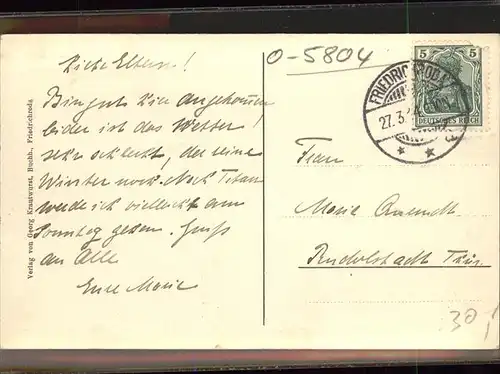 O-5804
Liebe Eltern!
Bin gut hier angekommen
leider ist das Wetter
sehr schlecht, der reine
Winter noch. Nach
werde ich vielleicht am
Sonntag gehen. Gruß
an Alle
Eure Marie
Frau
Marie
Rudolstadt Thür.
5 5
DEUTSCHES REICH
FRIEDRICHRODA
27.3.
30,-
Verlag von Georg Krautwurst, Buchh., Friedrichroda